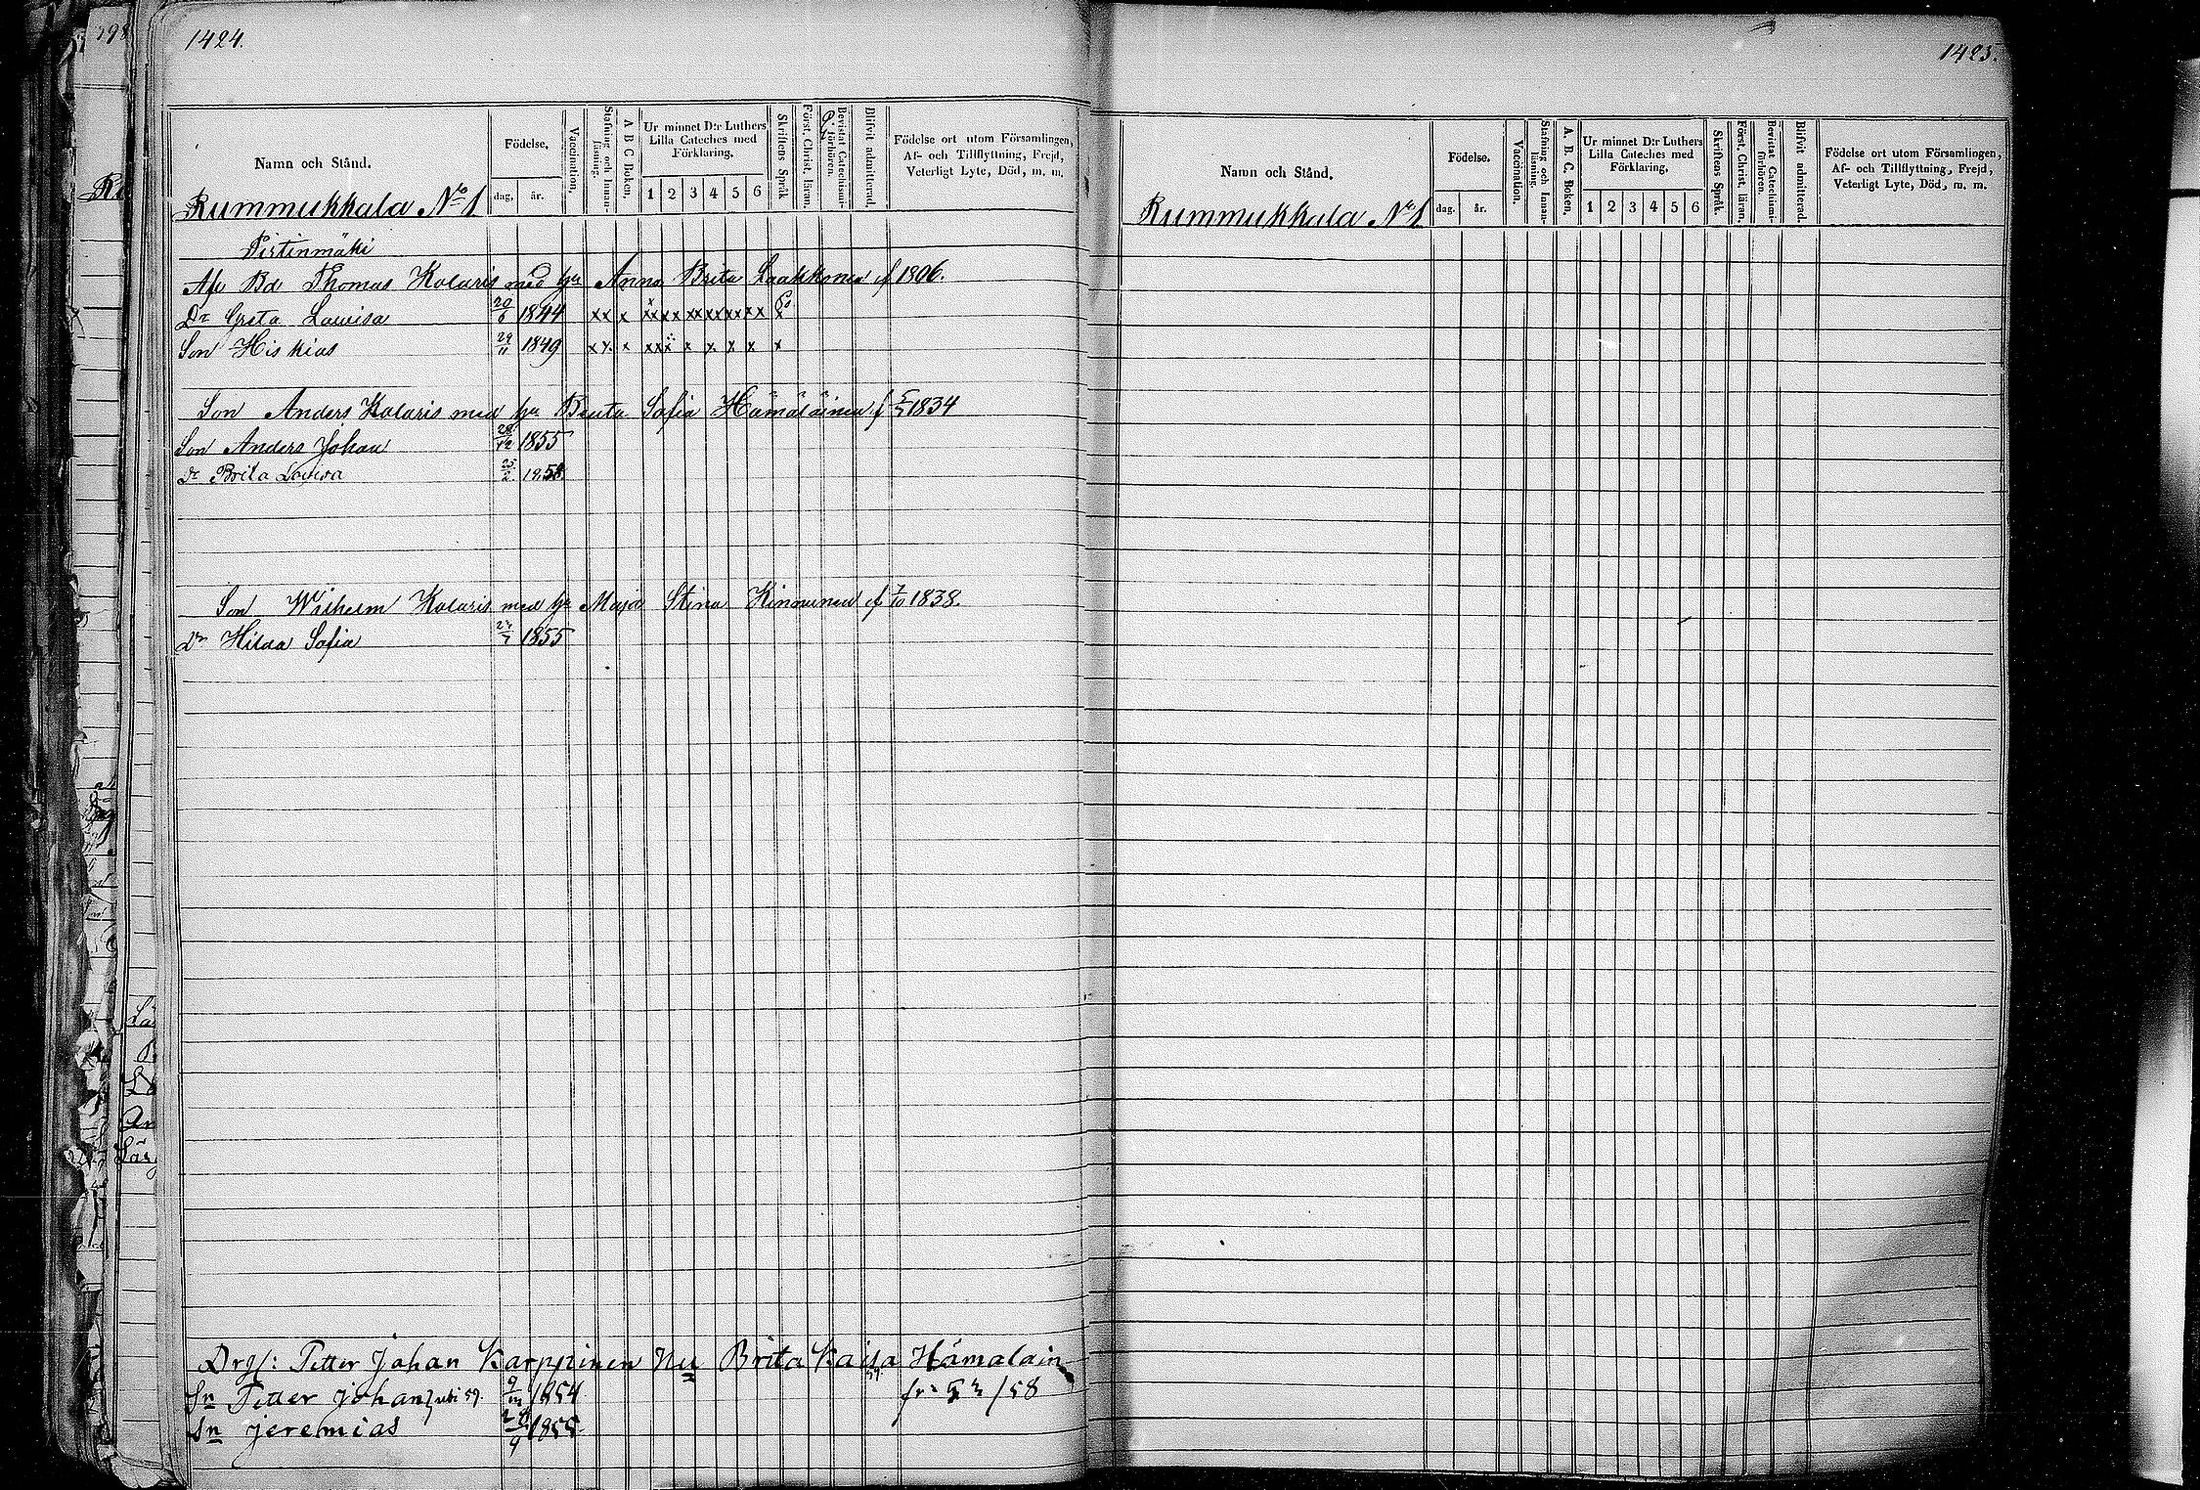 1424.
Namn och Stånd.
Födelse,
dag, år.
Vaccination,
Stafning och Innanläsning.
A B C Boken,
Ur minnet D:r Luthers Lilla Cateches med Förklaring,
1 2 3 4 5 6
Skriftens Språk
Först. Christ. läran.
Bevistat Catechismiförhören.
Blifvit admitterad.
Födelse ort utom Församlingen, Af- och Tillflyttning, Frejd, Veterligt Lyte, Död, m. m.
Rummukkala No 1
Pirtinmäki
Afs Bd Thomas Kolaris med hu Anna Brita Laakkonen f 1806.
Dr Greta Lowisa 20/6 1844 x x x x x x x x x x x x x x
Son Hiskias 29/11 1849 x x x x x x x x x x x x
Son Anders Kolaris med hu Beata Sofia Hämäläinen f 5/5 1834
Son Anders Johan 28/12 1855
Dr Brita Lovisa 25/2 1858.
Son Wilhelm Kolaris med hu Maja Stina Kinnunen f 7/10 1838.
Dr Hilda Sofia 1855
Drg: Petter Johan Karppinen Hu Brita Kaisa Hämäläin
Sn Petter Johan 59. 1854 /58
Sn jeremias 9 1855
1425.
Namn och Stånd.
Födelse.
dag. år.
Vaccination.
Stafning och Innanläsning.
A. B. C. Boken,
Ur minnet D:r Luthers Lilla Cateches med Förklaring,
1 2 3 4 5 6
Skriftens Språk.
Först. Christ. läran.
Bevistat Catechismiförhören.
Blifvit admitterad.
Födelse ort utom Församlingen, Af- och Tillflyttning, Frejd, Veterligt Lyte, Död, m. m.
Rummukkala No 1